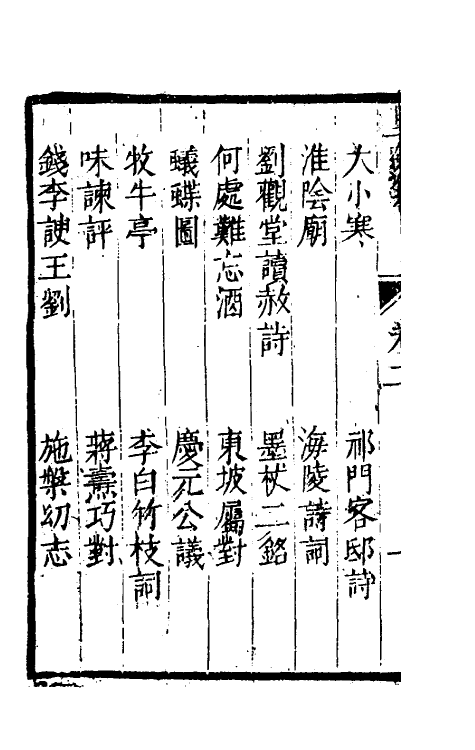 大小寒　祁門客邸詩
淮陰廟　海陵詩詞
劉觀堂讀赦詩　墨杖二銘
何處難忘酒　東坡屬對
蟻蝶圖　慶元公議
牧牛亭　李白竹枝詞
味諫評　蔣燾巧對
錢李諛王劉　施槃幼志
卷二
一